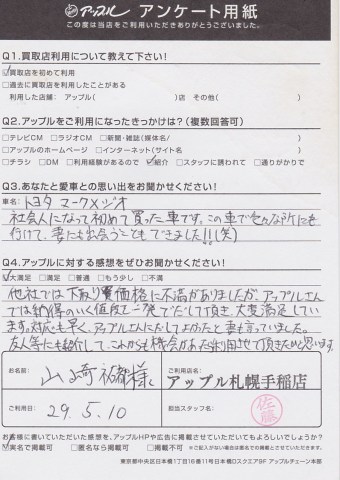 アップル アンケート用紙
この度は当店をご利用いただきありがとうございました。
Q1.買取店利用について教えて下さい!
☑買取店を初めて利用
□過去に買取店を利用したことがある
利用した店舗: アップル( )店 その他( )
Q2.アップルをご利用になったきっかけは?(複数回答可)
□テレビCM □ラジオCM □新聞・雑誌(媒体名/ )
□アップルのホームページ □インターネット(サイト名 )
□チラシ □DM □利用経験があるので ☑紹介 □スタッフに誘われて □通りがかりで
Q3.あなたと愛車との思い出をお聞かせください!
車名: トヨタ マークXジオ
社会人になって初めて買った車です。この車で色んな所にも
行けて、妻にも出会うこともできました!!(笑)
Q4.アップルに対する感想をぜひお聞かせください!
☑大満足 □満足 □普通 □もう少し □不満
他社では下取り買価格に不満がありましたが、アップルさん
では納得のいく値段を一発でだして頂き、大変満足してい
ます。対応も早く、アップルさんにだしてよかったと妻も言っていました。
友人等にも紹介して、これからも機会があれば利用させて頂きたいと思います。
お名前 山崎 様
ご利用店名 アップル札幌手稲店
ご利用日 29.5.10
担当スタッフ名 佐藤
お客様に書いていただいた感想を、アップルHPや広告に掲載させていただいてもよろしいでしょうか?
☑実名で掲載可 □匿名なら掲載可 □掲載不可 ※ご記入がない場合は匿名での掲載とさせていただきます。
東京都中央区日本橋1丁目16番11号日本橋Dスクエア9F アップルチェーン本部